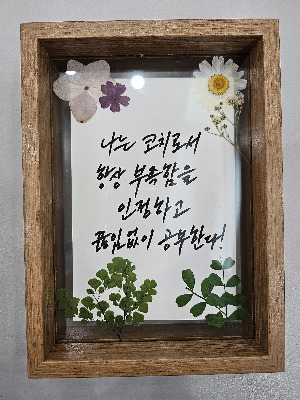 나는 코치로서
항상 부족함을
인정하고
끊임없이 공부한다!